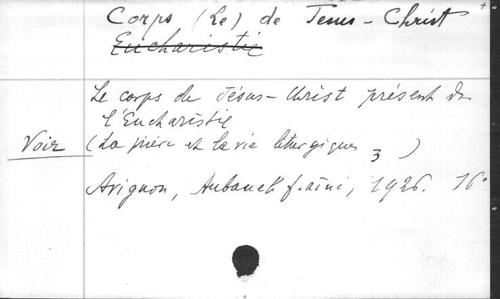 Corps (Le) de Jésus-Christ
Eucharistie
Le corps de Jésus-Christ présent ds
l'Eucharistie
Voir (La prière et la vie liturgiques 3)
Avignon, Aubanel f. aîné, 1926. 16°